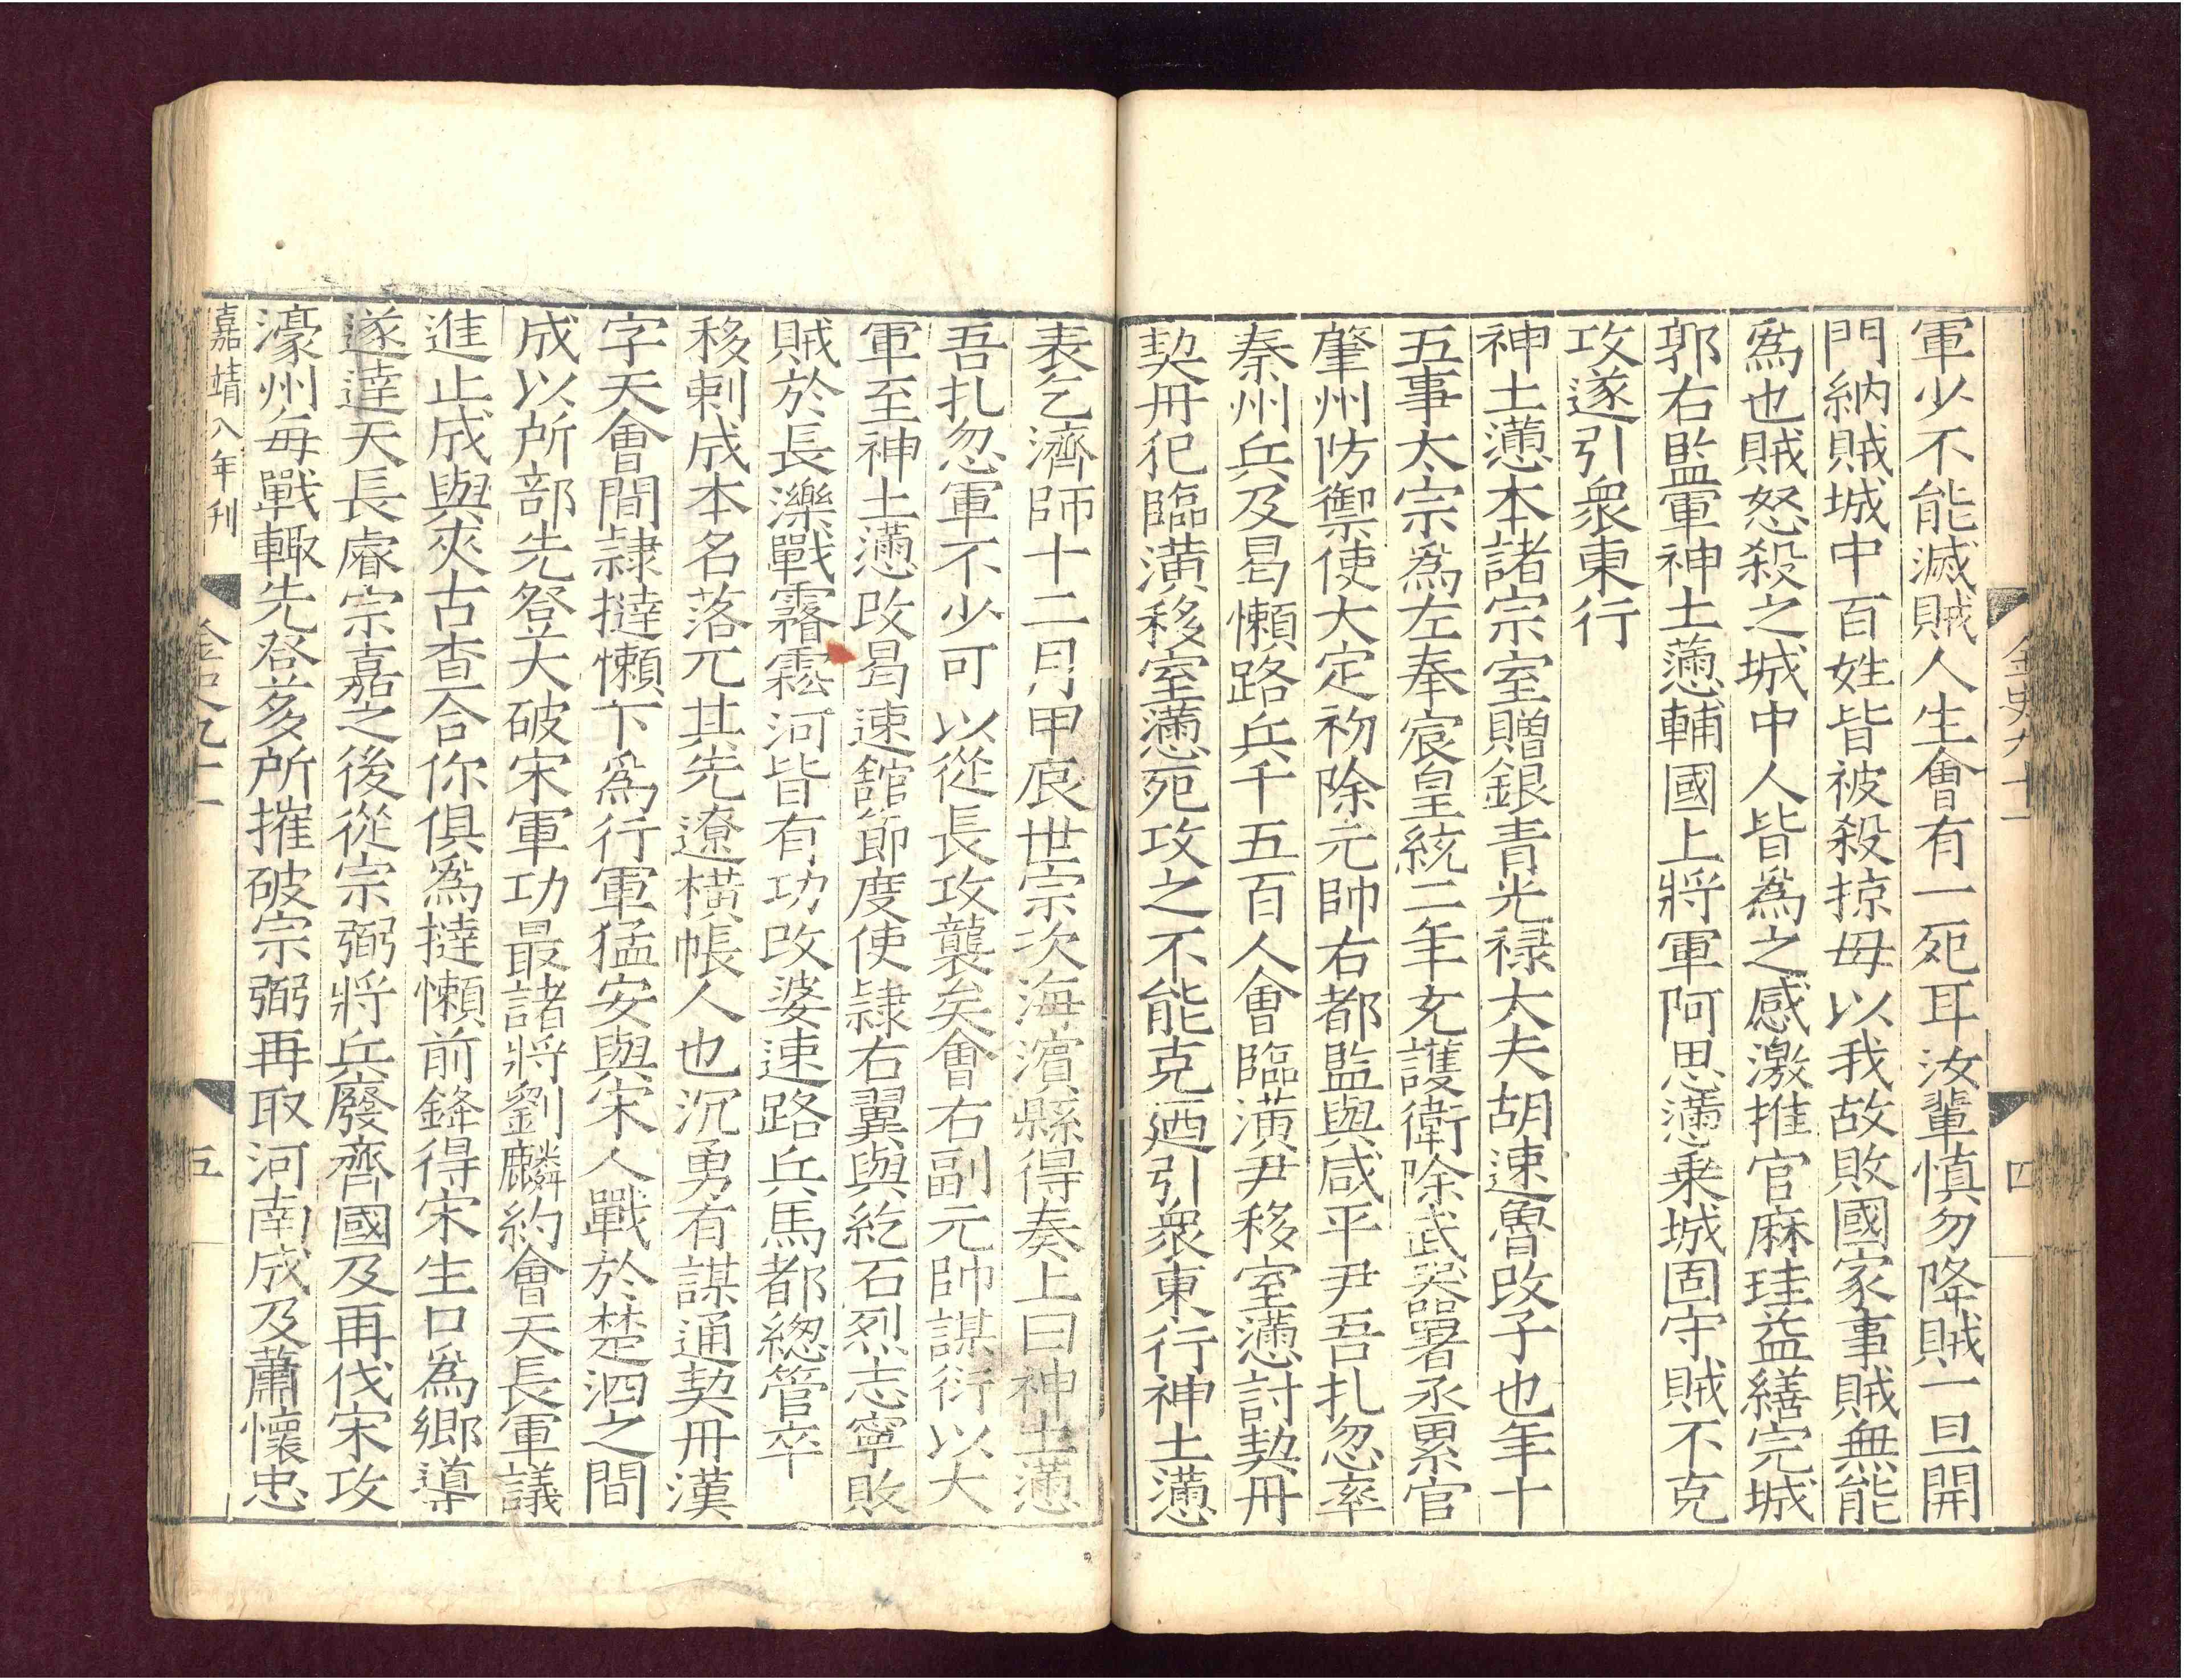 軍少不能滅賊人生會有一死耳汝輩慎勿降賊一旦開
門納賊城中百姓皆被殺掠毋以我故敗國家事賊無能
爲也賊怒殺之城中人皆爲之感激推官麻珪益繕完城
郭右監軍神土懣輔國上將軍阿思懣乗城固守賊不克
攻遂引衆東行
神土懣本諸宗室室贈銀青光禄大夫胡速魯改子也年十
五事太宗爲左奉宸皇統二年充護衛除武器署丞累官
肇州防禦使大定初除元帥右都監與咸平尹吾扎忽率
秦州兵及曷懶路兵千五百人會臨潢尹移室懣討契丹
契丹犯臨潢移室懣死攻之不能克廼引衆東行神土懣
表乞濟師十二月甲戌世宗次海濱縣得奏上曰神土懣
吾扎忽軍不少可以從長攻襲矣會右副元帥謀衍以大
軍至神土懣改曷速館節度使隷右翼與紇石烈志寧敗
賊於長濼戰霿𩃭河皆有功改婆速路兵馬都緫管卒
移剌成本名落兀其先遼橫帳人也沉勇有謀通契丹漢
字天會間隷撻懶下爲行軍猛安與宋人戰於楚泗之間
成以所部先登大破宋軍功最諸將劉麟約會天長軍議
進止成與夾古查合你俱爲撻懶前鋒得宋生口爲鄉導
遂達天長睿宗嘉之後從宗弼將兵廢齊國及再伐宋攻
濠州每戰輒先登多所摧破宗弼再取河南成及蕭懷忠
嘉靖八年刊
金史九十一
四
金史九十一
五